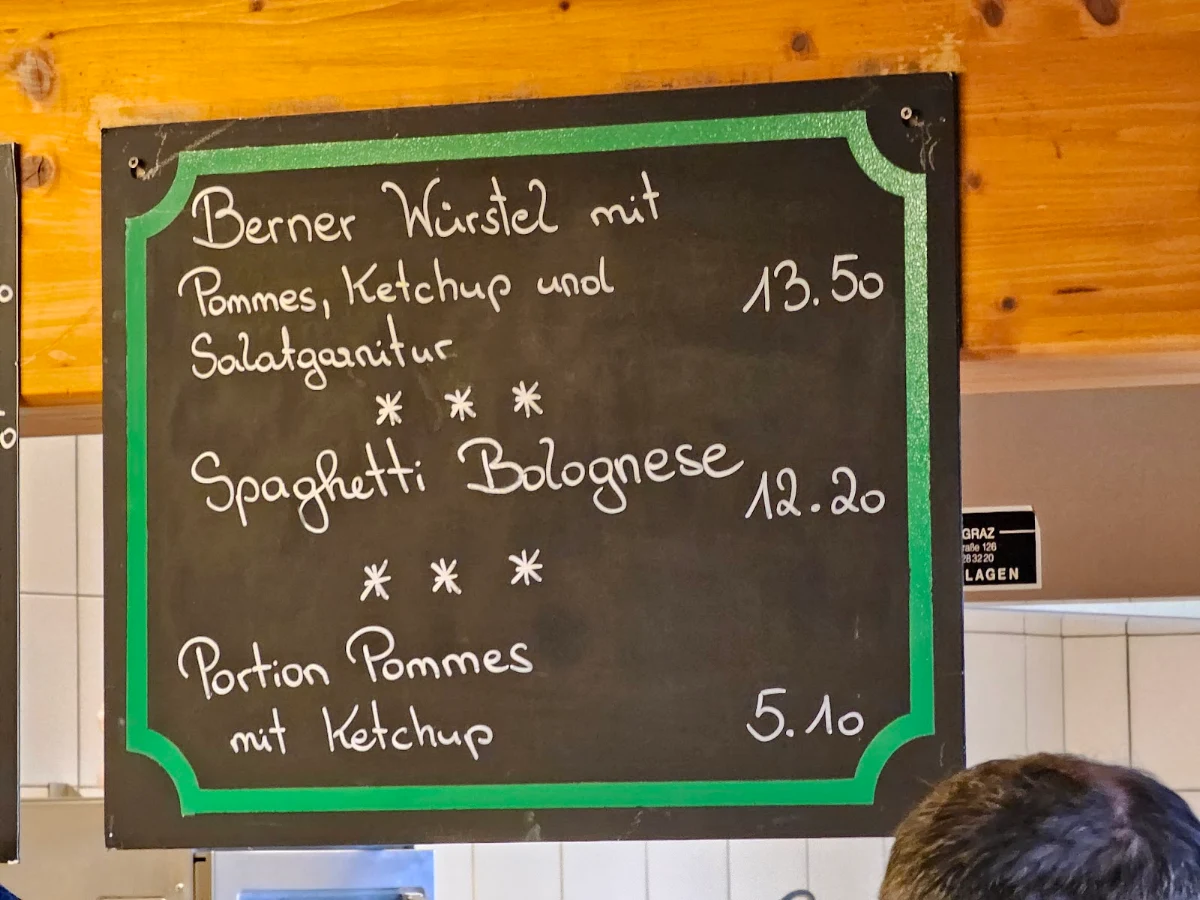 Berner Würstel mit
Pommes, Ketchup und 13.50
Salatgarnitur
* * *
Spaghetti Bolognese 12.20
* * *
Portion Pommes
mit Ketchup 5.10
GRAZ
raße 126
283220
LAGEN